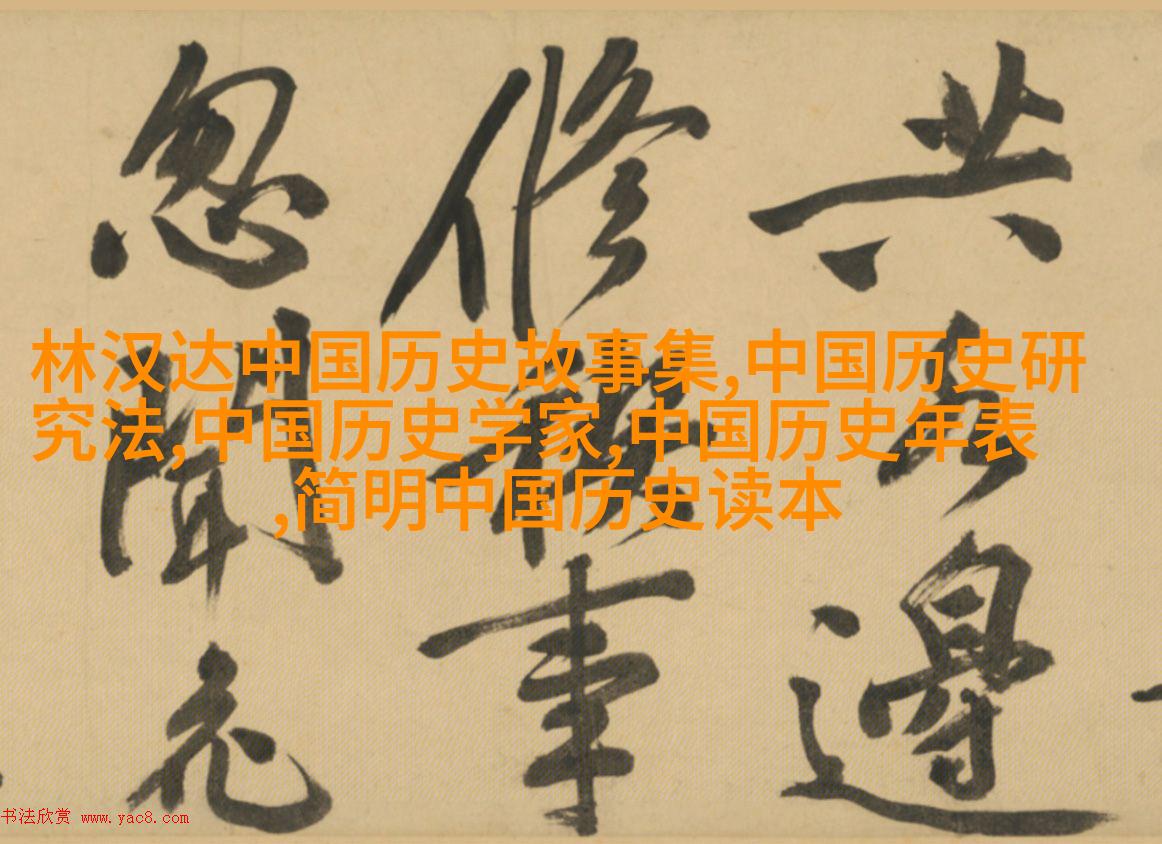 林汉达中国历史故事集,中国历史研
究法,中国历史学家,中国历史年表
,简明中国历史读本
共 邊
修 事
忽聞
书法欣赏 www.yac8.com